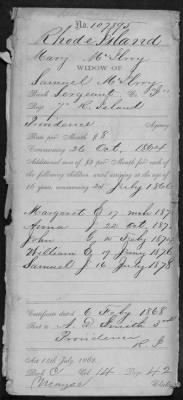 No. 107895
Rhode Island
Mary McIlroy
WIDOW OF
Samuel McIlroy
Rank Sergeant Co.
Regt 7" R. Island
Providence Agency
Rate per Month $8
Commencing 26 Oct. 1864
Additional sum of $2 per Month for each of
the following children until arriving at the age of
16 years, commencing 25 July 1866
Margaret E 17 mch 187
Anna J 22 oct, 187
John G Feby 187
William G 19 June 1876
Samuel J 16 July 1878
Certificate dated 6 Feby 1868
Sent to A. D. Smith 2nd
Providence
R. I.
Act 14th July, 1862.
Book C Vol. 14 Page 42
Clerk.